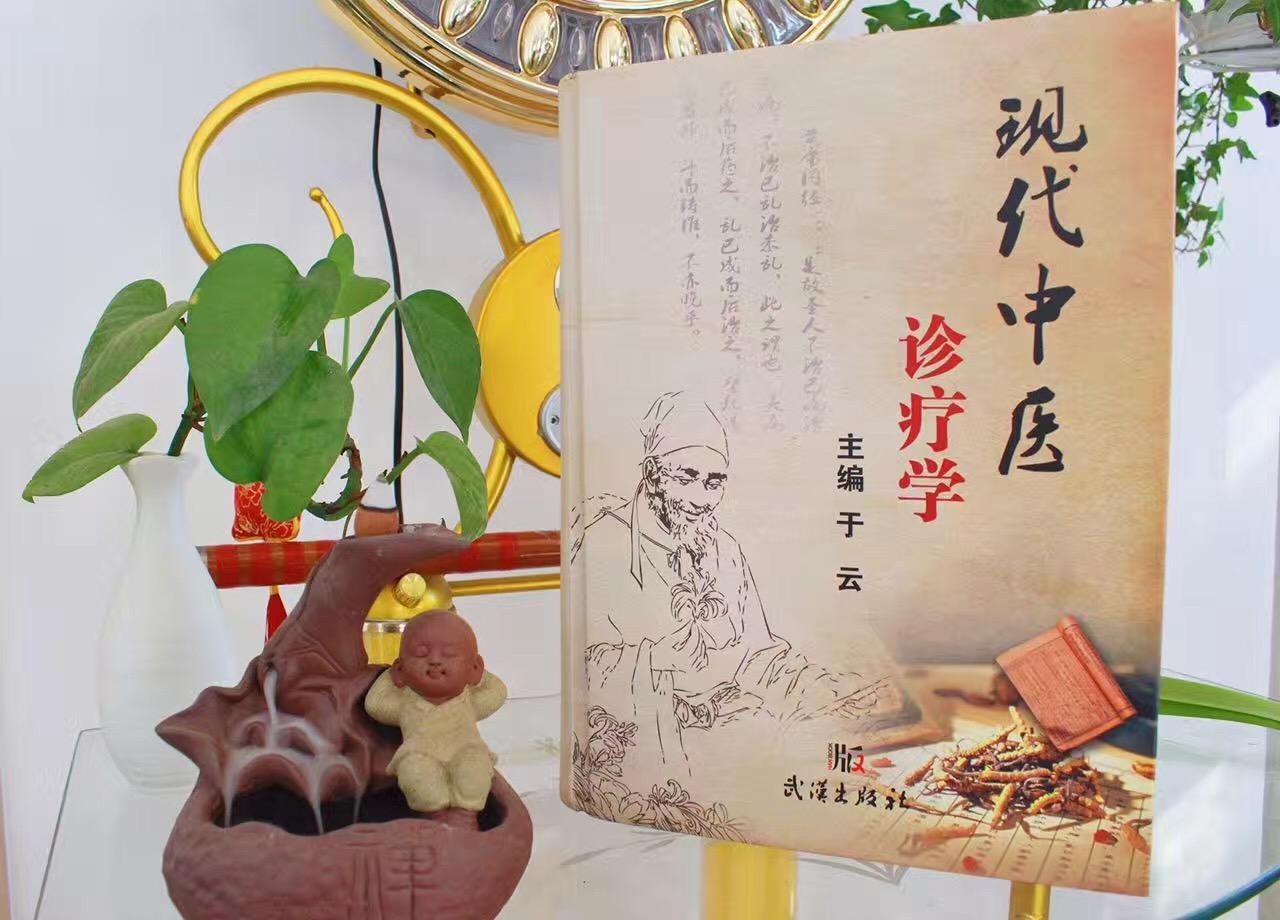 现代中医
诊疗学
主编 于云
黄帝内经 是故圣人不治已病治
病,不治已乱治未乱,此之谓也 夫病
已成而后药之,乱已成而后治之,
斗而铸锥,不亦晚乎。
版
武漢出版社
禅